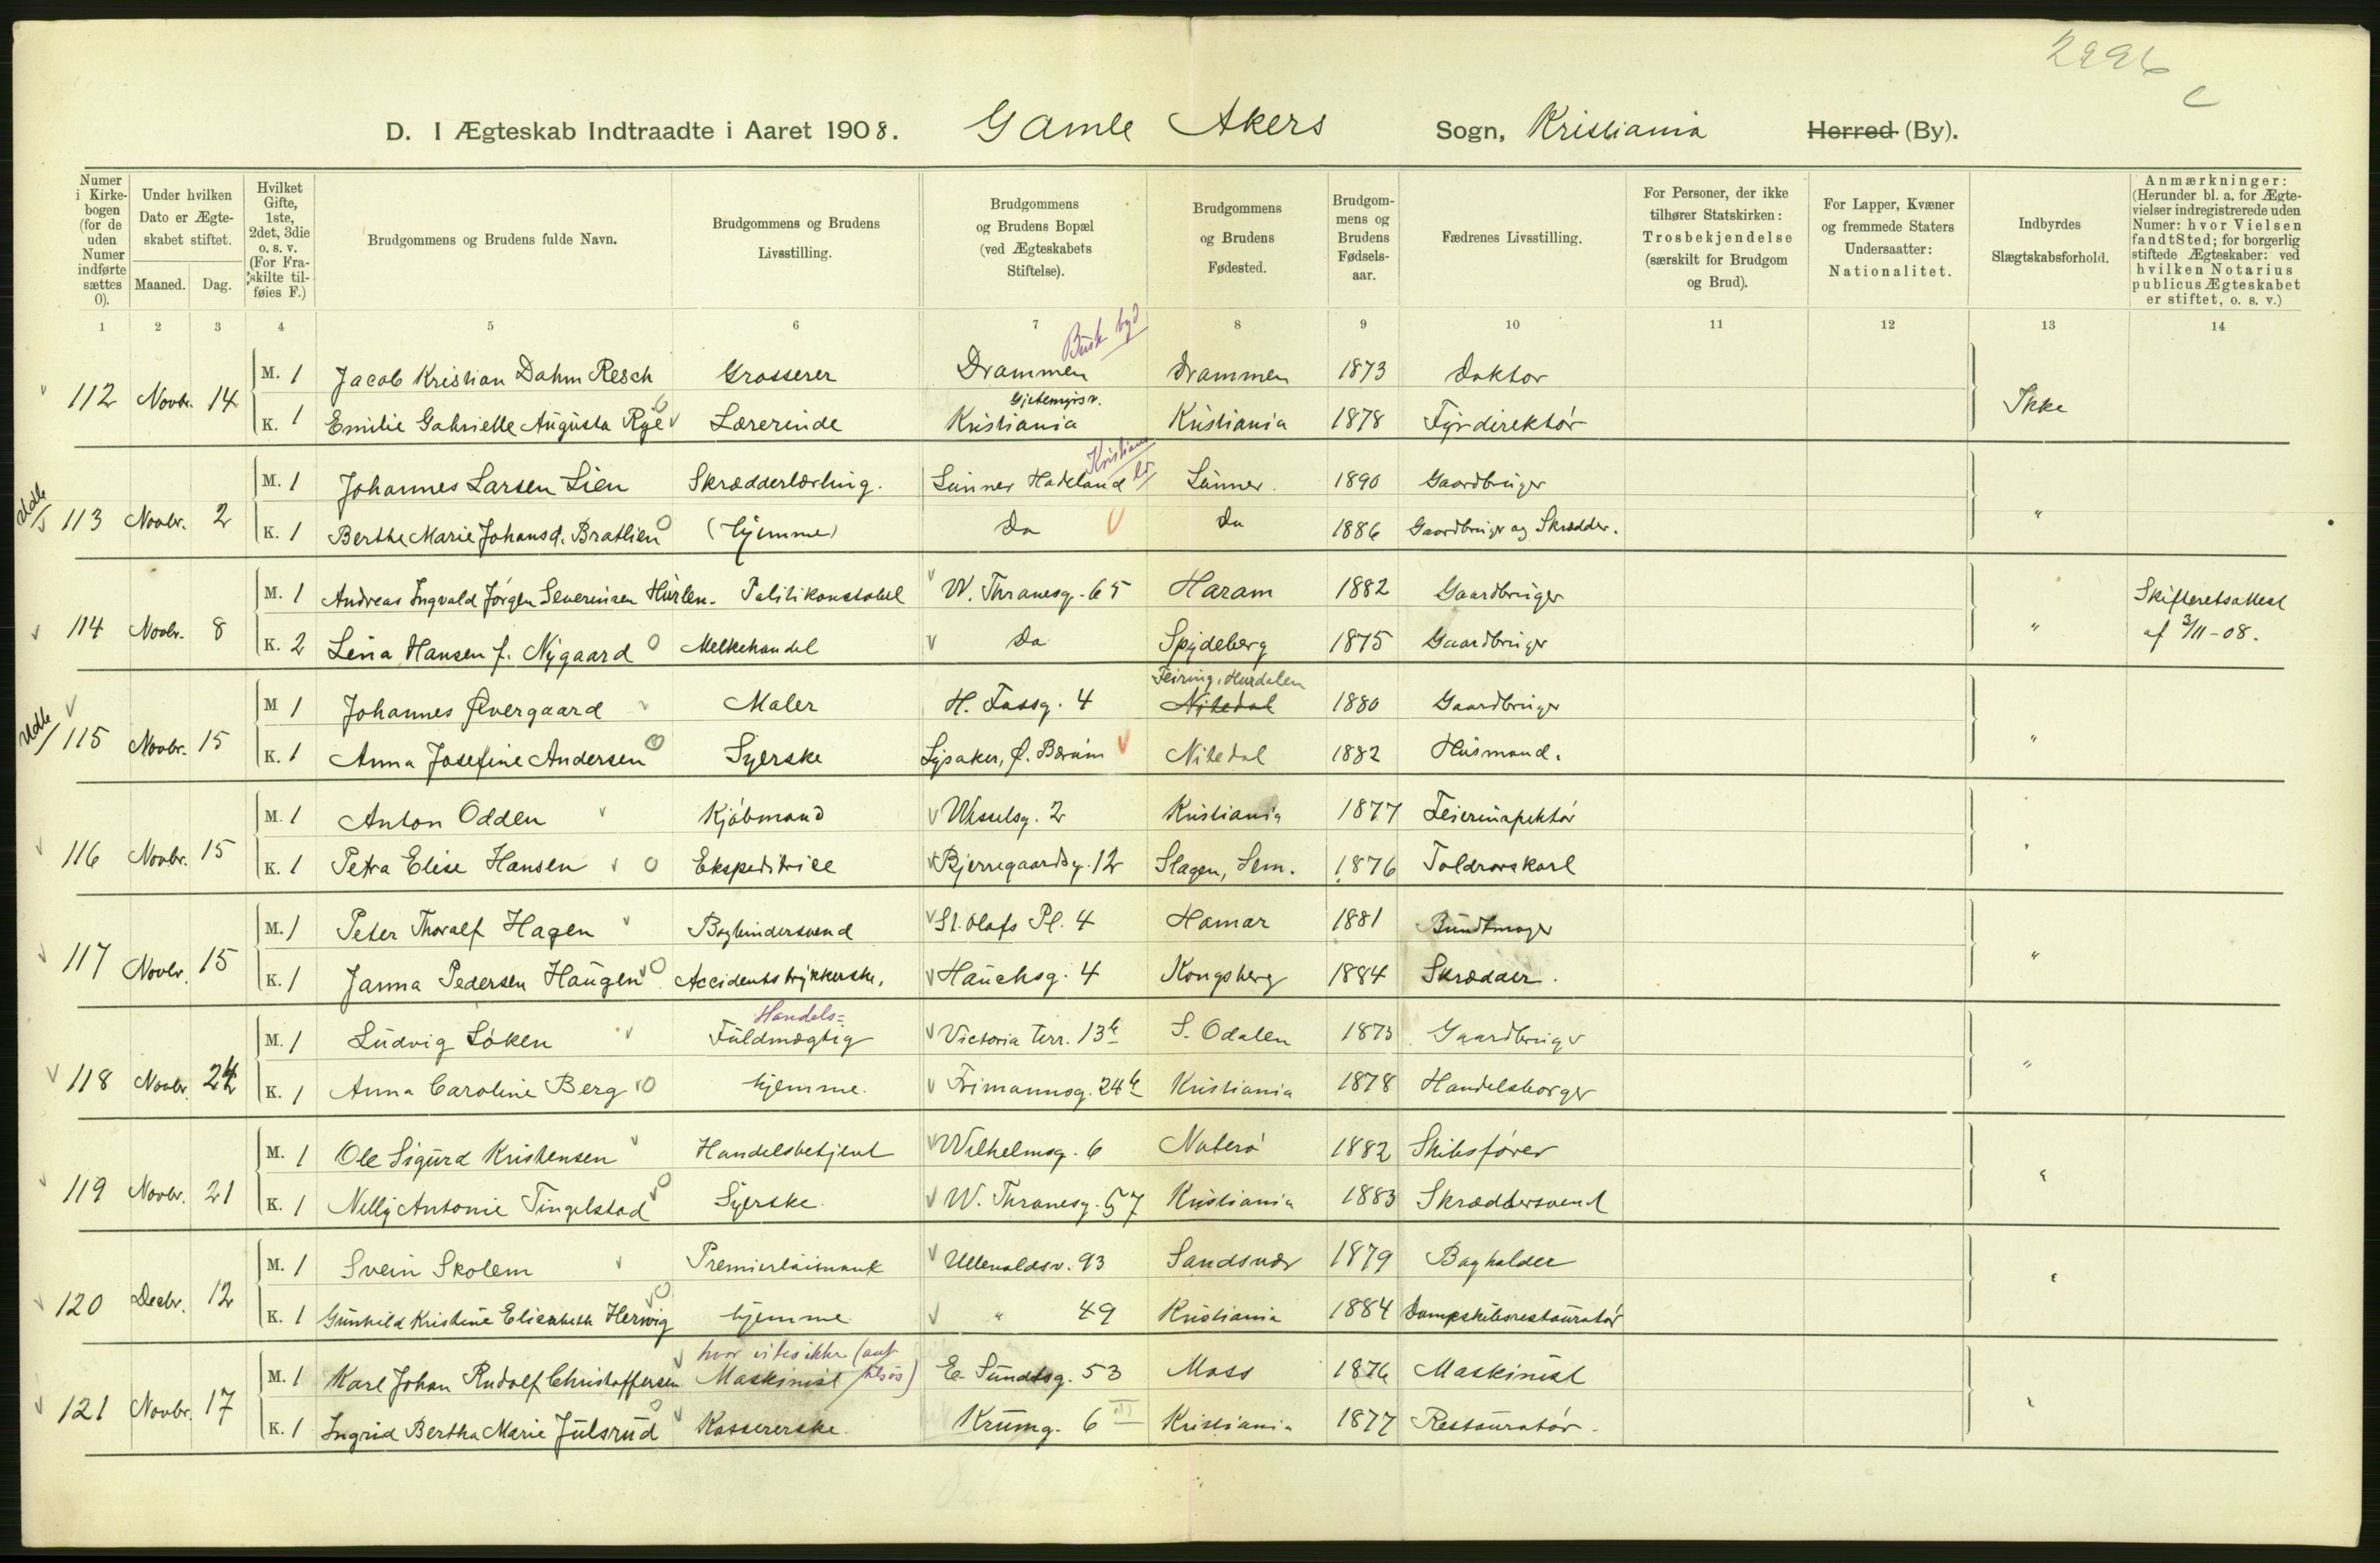 2226
c
D. I Ægteskab Indtraadte i Aaret 1908. Gamle Akers Sogn, Kristiania Herred (By).
Numer i Kirke-bogen (for de uden Numer indførte sættes 0).
Under hvilken Dato er Ægte-skabet stiftet.
Maaned. Dag.
Hvilket Gifte, 1ste, 2det, 3die o. s. v. (For Fra-skilte til-føies F.)
Brudgommens og Brudens fulde Navn.
Brudgommens og Brudens Livsstilling.
Brudgommens og Brudens Bopæl (ved Ægteskabets Stiftelse).
Brudgommens og Brudens Fødested.
Brudgom-mens og Brudens Fødsels-aar.
Fædrenes Livsstilling.
For Personer, der ikke tilhører Statskirken: Trosbekjendelse (særskilt for Brudgom og Brud).
For Lapper, Kvæner og fremmede Staters Undersaatter: Nationalitet.
Indbyrdes Slægtskabsforhold.
Anmærkninger: (Herunder bl. a. for Ægte-vielser indregistrerede uden Numer: hvor Vielsen fandt Sted; for borgerlig stiftede Ægteskaber: ved hvilken Notarius publicus Ægteskabet er stiftet, o. s. v.)
1 2 3 4 5 6 7 8 9 10 11 12 13 14
Busk byd
M. 1 Jacob Kristian Dahm Resch Grosserer Drammen Drammen 1873 Doktor
112 Novbr. 14 Ikke
Gjetemyrsv.
K. 1 Emilie Gabrielle Augusta Rye Lærerinde Kristiania Kristiania 1878 Fyrdirektör
Kristians
M. 1 Johannes Larsen Lien Skrædderlærling. Lunner Hadeland Lunner. 1890 Gaardbruger
Udb
113 Novbr. 2 "
K. 1 Berthe Marie Johansd. Bratlien (hjemme) Do Do 1886 Gaardbruger og Skrædder.
M. 1 Andreas Ingvald Jörgen Severinsen Hurlen. Politikonstabel W. Thranesg. 65 Haram 1882 Gaardbruger Skifteretsattest
114 Novbr. 8 " af 3/11-08.
K. 2 Lena Hansen f. Nygaard Melkehandel Do Spydeberg 1875 Gaardbruger
Feiring, Hurdalen
M 1 Johannes Øvergaard Maler H. Fossg. 4 Nitedal 1880 Gaardbruger
Udb
115 Novbr. 15 "
K. 1 Anna Josefine Andersen Syerske Lysaker, Ø. Bærum Nitedal 1882 Husmand.
M. 1 Anton Odden Kjöbmand Wesselsg. 2 Kristiania 1877 Feierinspektör
116 Novbr. 15 "
K. 1 Petra Elise Hansen Ekspeditrice Bjerregaardsg. 12 Slagen, Sem. 1876 Toldrorskarl
M. 1 Peter Thoralf Hagen Bogbindersvend St. Olafs Pl. 4 Hamar 1881 Bundtmager
117 Novbr. 15 "
K. 1 Janna Pedersen Haugen Accidentstrykkerske, Hauchsg. 4 Kongsberg 1884 Skrædder.
Handels=
M. 1 Ludvig Löken Fuldmægtig Victoria Terr. 13b S. Odalen 1873 Gaardbruger
118 Novbr. 24 "
K. 1 Anna Caroline Berg hjemme. Frimannsg. 24b Kristiania 1878 Handelsborger
M. 1 Ole Sigurd Kristensen Handelsbetjent Wilhelmsg. 6 Nöterö 1882 Skibsförer
119 Novbr. 21 "
K. 1 Nelly Antonie Tingelstad Syerske. W. Thranesg. 57 Kristiania 1883 Skræddersvend
M. 1 Svein Skolem Premierløitnant Ullevaldsv. 93 Sandsvær 1879 Bogholder
120 Decbr. 12 "
K. 1 Gunhild Kristine Elisabeth Herwig hjemme " 49 Kristiania 1884 Dampskibsrestauratör
hvor vites ikke (
M. 1 Karl Johan Rudolf Christoffersen Maskinist E. Sundtsg. 53 Moss 1876 Maskinist
121 Novbr. 17 "
K. 1 Ingrid Bertha Marie Julsrud Kassererske. Krumg. 6 III Kristiania 1877 Restauratör.